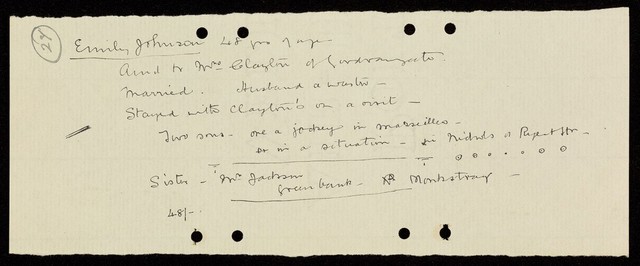 27
Emily Johnson 48 yrs of age
Aunt to Mrs Clayton of
Married. Husband a waster —
Stayed with Clayton's on a visit —
Two sons — one a jockey in Marseilles —
or in a situation — in Nichols of Regent Str —
Sister — Mrs Jackson
Greenbank — Nr Monkstray —
48/-.